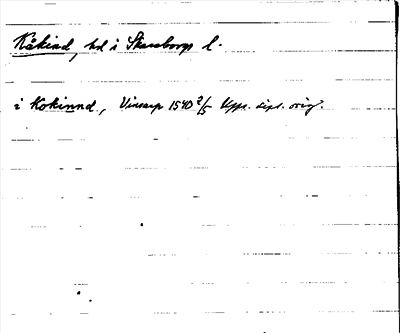 Kåkind, hd i Skaraborgs l.
i Kokinnd, Vinsarp 1540 2/5 Upps. dipl. orig.